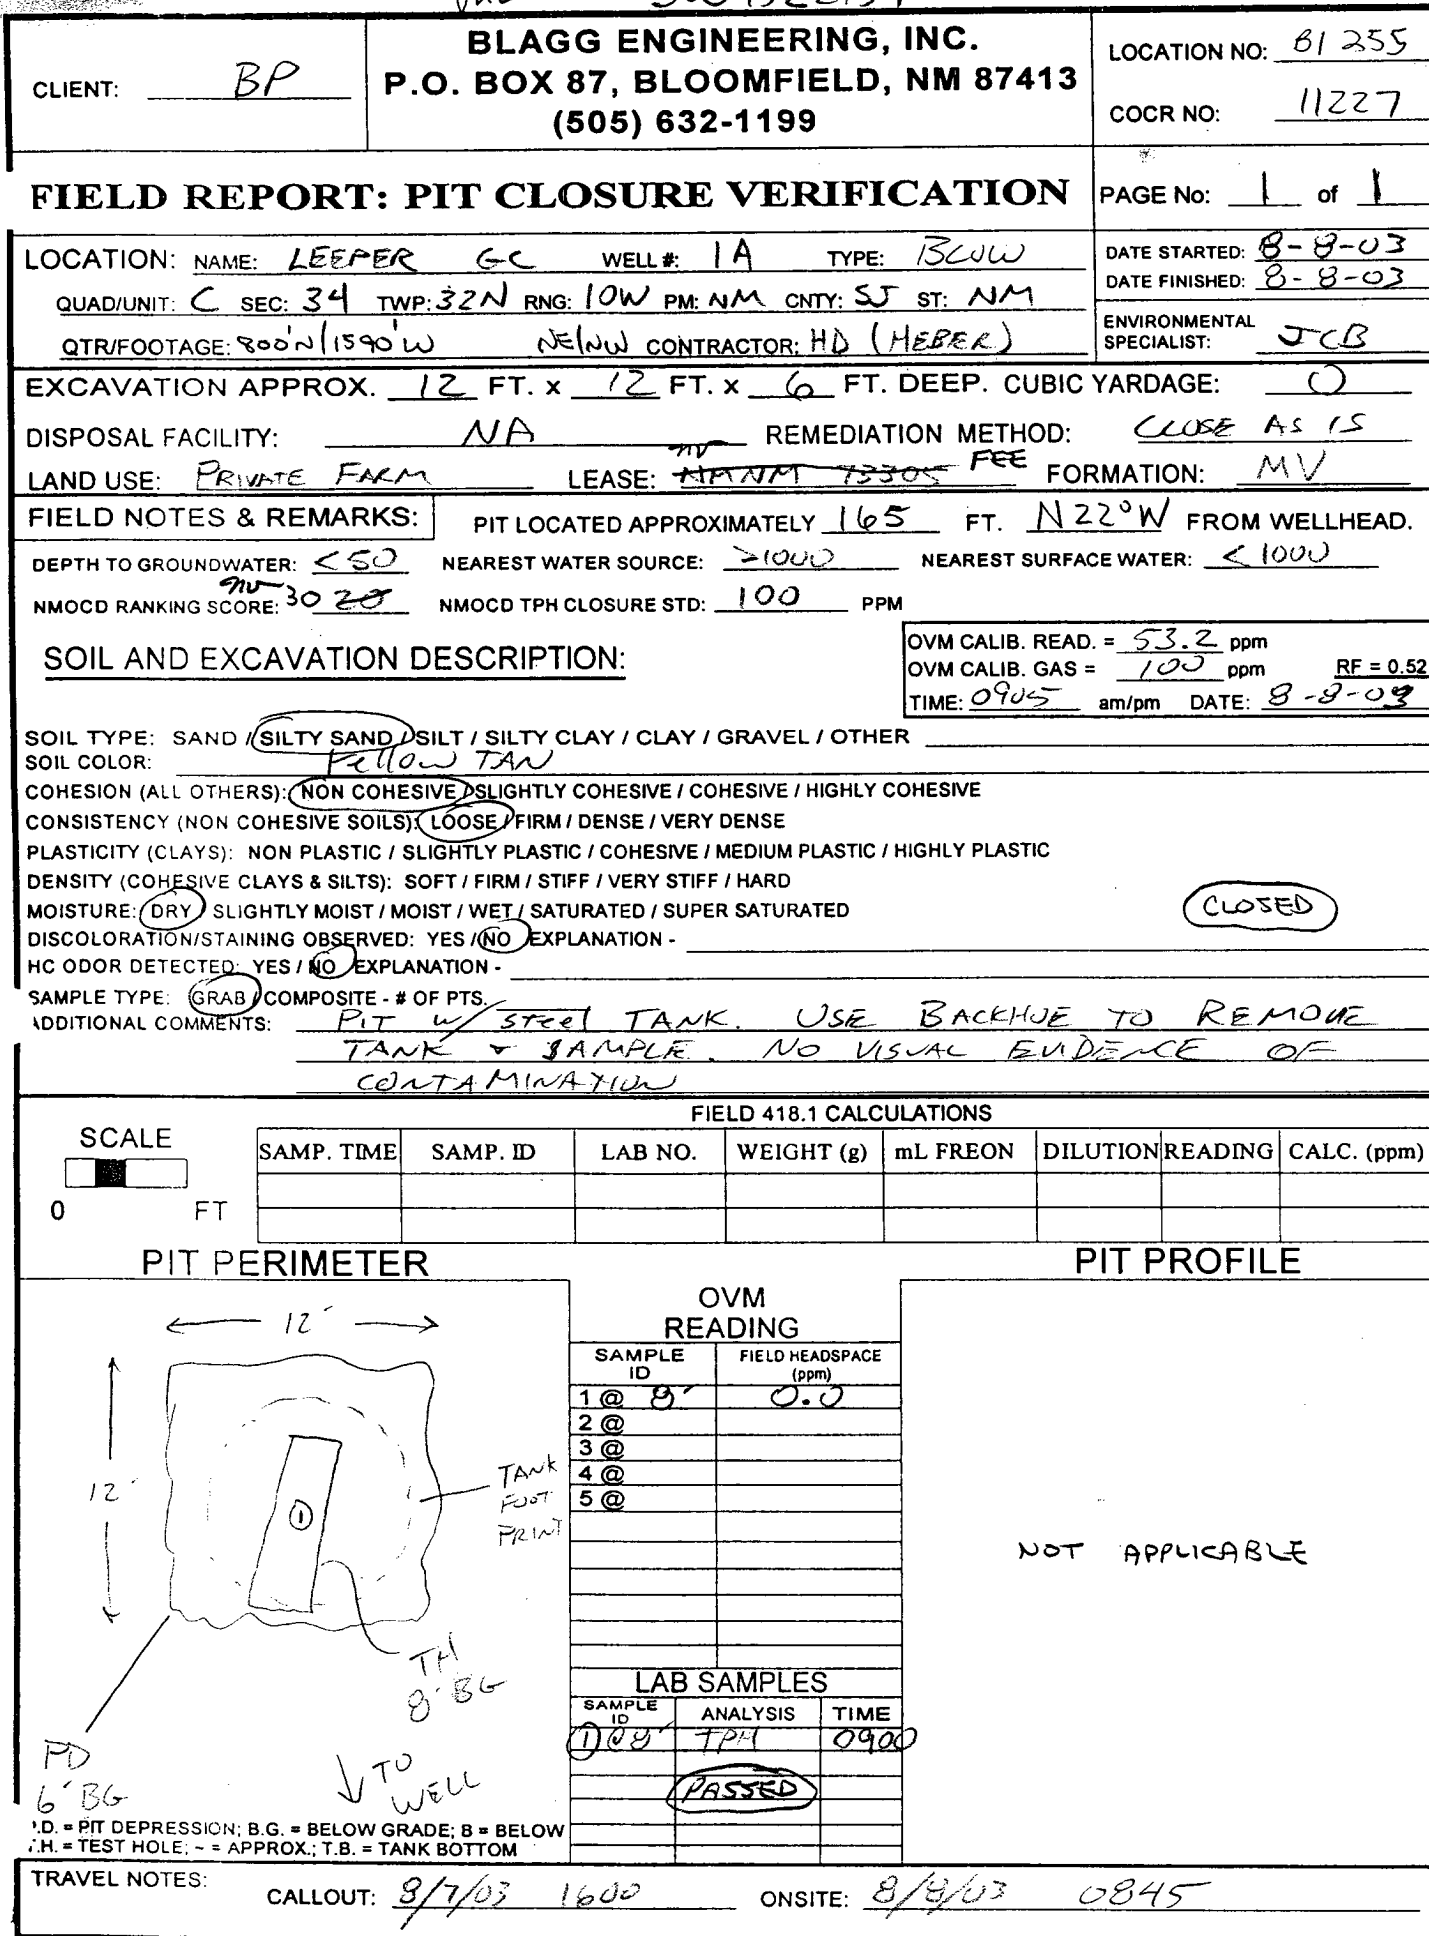 BLAGG ENGINEERING, INC.
P.O. BOX 87, BLOOMFIELD, NM 87413
(505) 632-1199
CLIENT: BP
LOCATION NO: B1255
COCR NO: 11227
FIELD REPORT: PIT CLOSURE VERIFICATION
PAGE No: 1 of 1
LOCATION: NAME: LEEPER GC WELL #: 1A TYPE: BLOW
DATE STARTED: 8-8-03
DATE FINISHED: 8-8-03
QUAD/UNIT: C SEC: 34 TWP: 32N RNG: 10W PM: NM CNTY: SJ ST: NM
QTR/FOOTAGE: 800'N/1590'W NE/NW CONTRACTOR: HD (HEBER)
ENVIRONMENTAL
SPECIALIST: JCB
EXCAVATION APPROX. 12 FT. x 12 FT. x 6 FT. DEEP. CUBIC YARDAGE: 0
DISPOSAL FACILITY: NA REMEDIATION METHOD: CLOSE AS IS
LAND USE: PRIVATE FARM LEASE: FEE FORMATION: MV
FIELD NOTES & REMARKS: PIT LOCATED APPROXIMATELY 165 FT. N22°W FROM WELLHEAD.
DEPTH TO GROUNDWATER: <50 NEAREST WATER SOURCE: >1000 NEAREST SURFACE WATER: <1000
NMOCD RANKING SCORE: 30 20 NMOCD TPH CLOSURE STD: 100 PPM
SOIL AND EXCAVATION DESCRIPTION:
OVM CALIB. READ. = 53.2 ppm
OVM CALIB. GAS = 100 ppm RF = 0.52
TIME: 0905 am/pm DATE: 8-8-03
SOIL TYPE: SAND / SILTY SAND / SILT / SILTY CLAY / CLAY / GRAVEL / OTHER
SOIL COLOR: Yellow TAN
COHESION (ALL OTHERS): NON COHESIVE / SLIGHTLY COHESIVE / COHESIVE / HIGHLY COHESIVE
CONSISTENCY (NON COHESIVE SOILS): LOOSE / FIRM / DENSE / VERY DENSE
PLASTICITY (CLAYS): NON PLASTIC / SLIGHTLY PLASTIC / COHESIVE / MEDIUM PLASTIC / HIGHLY PLASTIC
DENSITY (COHESIVE CLAYS & SILTS): SOFT / FIRM / STIFF / VERY STIFF / HARD
MOISTURE: DRY / SLIGHTLY MOIST / MOIST / WET / SATURATED / SUPER SATURATED
CLOSED
DISCOLORATION/STAINING OBSERVED: YES / NO EXPLANATION -
HC ODOR DETECTED: YES / NO EXPLANATION -
SAMPLE TYPE: GRAB / COMPOSITE - # OF PTS.
ADDITIONAL COMMENTS: PIT w/ steel TANK. USE BACKHOE TO REMOVE
TANK & SAMPLE. NO VISUAL EVIDENCE OF
CONTAMINATION
SCALE
0 FT
FIELD 418.1 CALCULATIONS
SAMP. TIME SAMP. ID LAB NO. WEIGHT (g) mL FREON DILUTION READING CALC. (ppm)
PIT PERIMETER
12'
12'
1
TANK
FOOT
PRINT
TH
8' BG
PD
6' BG
TO
WELL
P.D. = PIT DEPRESSION; B.G. = BELOW GRADE; B = BELOW
T.H. = TEST HOLE; ~ = APPROX.; T.B. = TANK BOTTOM
OVM
READING
SAMPLE ID FIELD HEADSPACE (ppm)
1 @ 8' 0.0
2 @
3 @
4 @
5 @
LAB SAMPLES
SAMPLE ID ANALYSIS TIME
1 @ 8' TPH 0900
PASSED
PIT PROFILE
NOT APPLICABLE
TRAVEL NOTES: CALLOUT: 8/7/03 1600 ONSITE: 8/8/03 0845